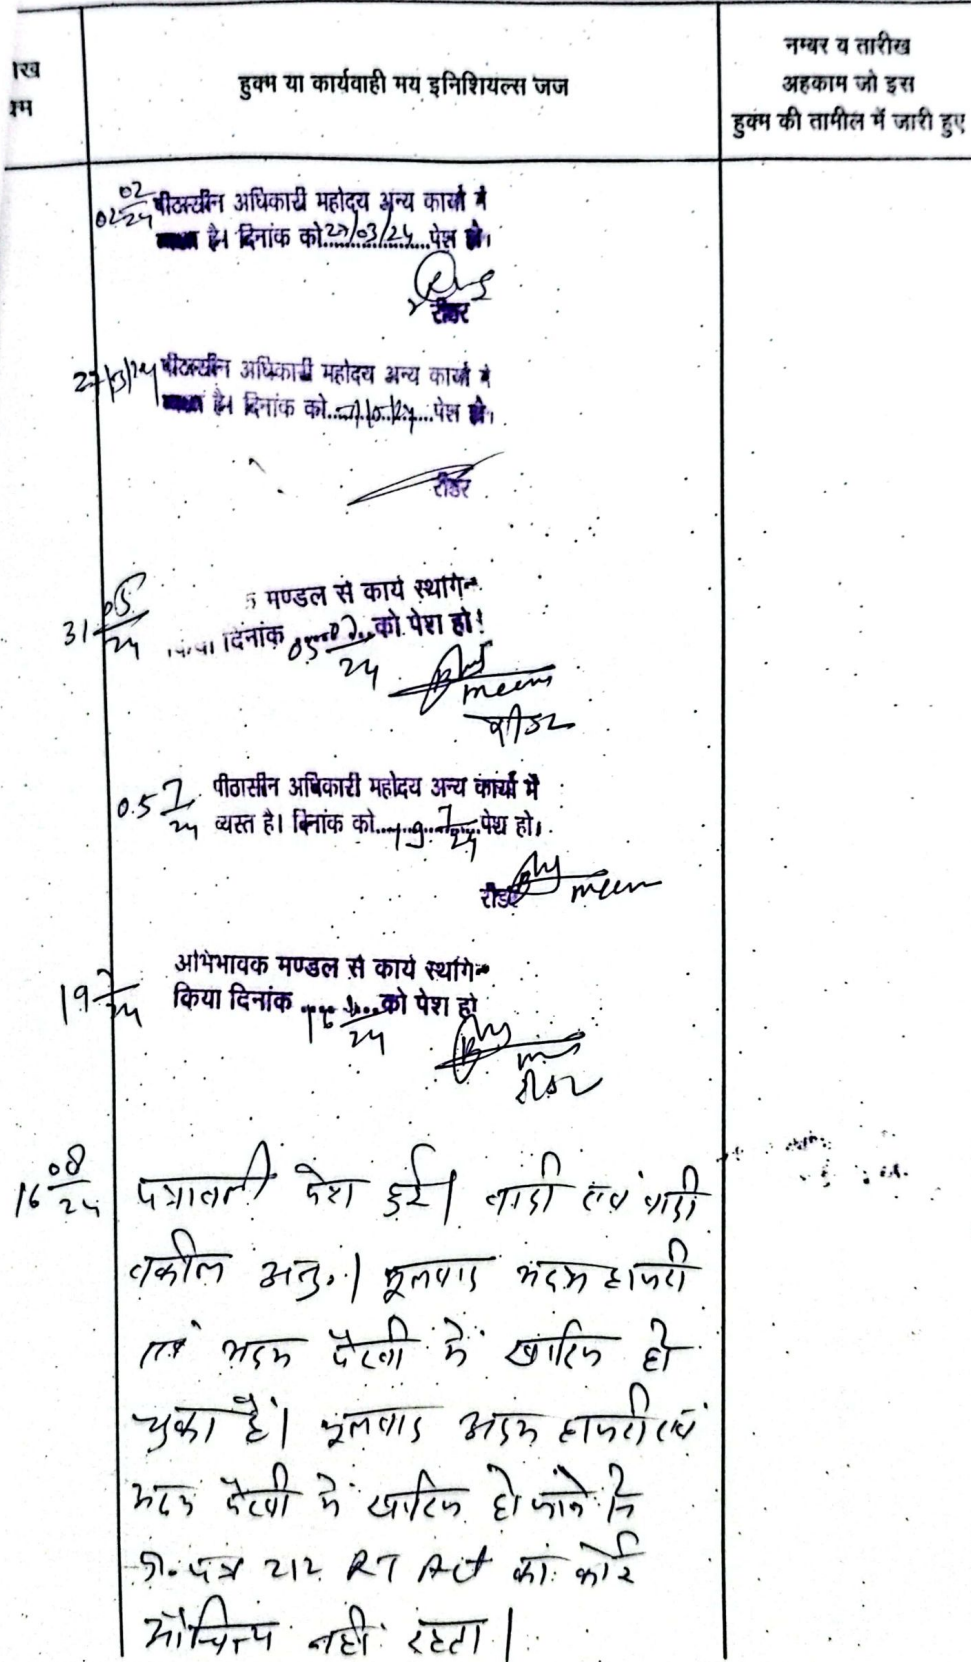 ख
क्म
हुक्म या कार्यवाही मय इनिशियल्स जज
नम्बर य तारीख
अहकाम जो इस
हुक्म की तामील में जारी हुए
02/02/24 पीठासीन अधिकारी महोदय अन्य कार्यो मे
है। दिनांक को 27/03/24 पेश हो।
रीडर
27/3/24 पीठासीन अधिकारी महोदय अन्य कार्यो मे
है। दिनांक को पेश हो।
रीडर
31/05/24 मण्डल से कार्य स्थगित
किया दिनांक 05/07/24 को पेश हो!
meena
रीडर
05/7/24 पीठासीन अधिकारी महोदय अन्य कार्यो मे
व्यस्त है। दिनांक को 19/7/24 पेश हो।
रीडर meena
19/7/24 अभिभावक मण्डल से कार्य स्थगित
किया दिनांक 16/8/24 को पेश हो
रीडर
16/08/24 पत्रावली पेश हुई। वादी एवं वादी
वकील अनु.। मूलवाद अदम हाजरी
एवं अदम पैरवी में खारिज हो
चुका है। मूलवाद अदम हाजरी एवं
अदम पैरवी में खारिज हो जाने से
प्रा. पत्र 212 RT Act का कोई
औचित्य नहीं रहता।